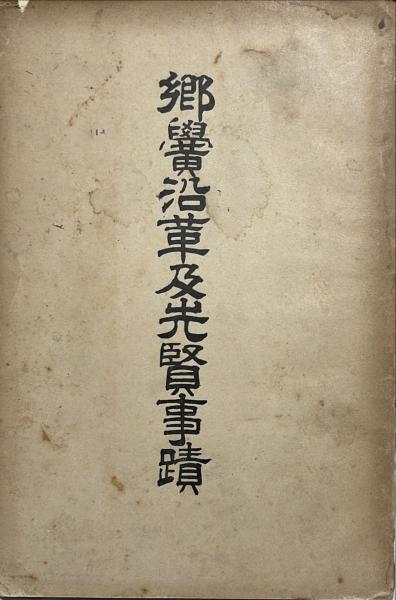 郷黌沿革及先賢事蹟